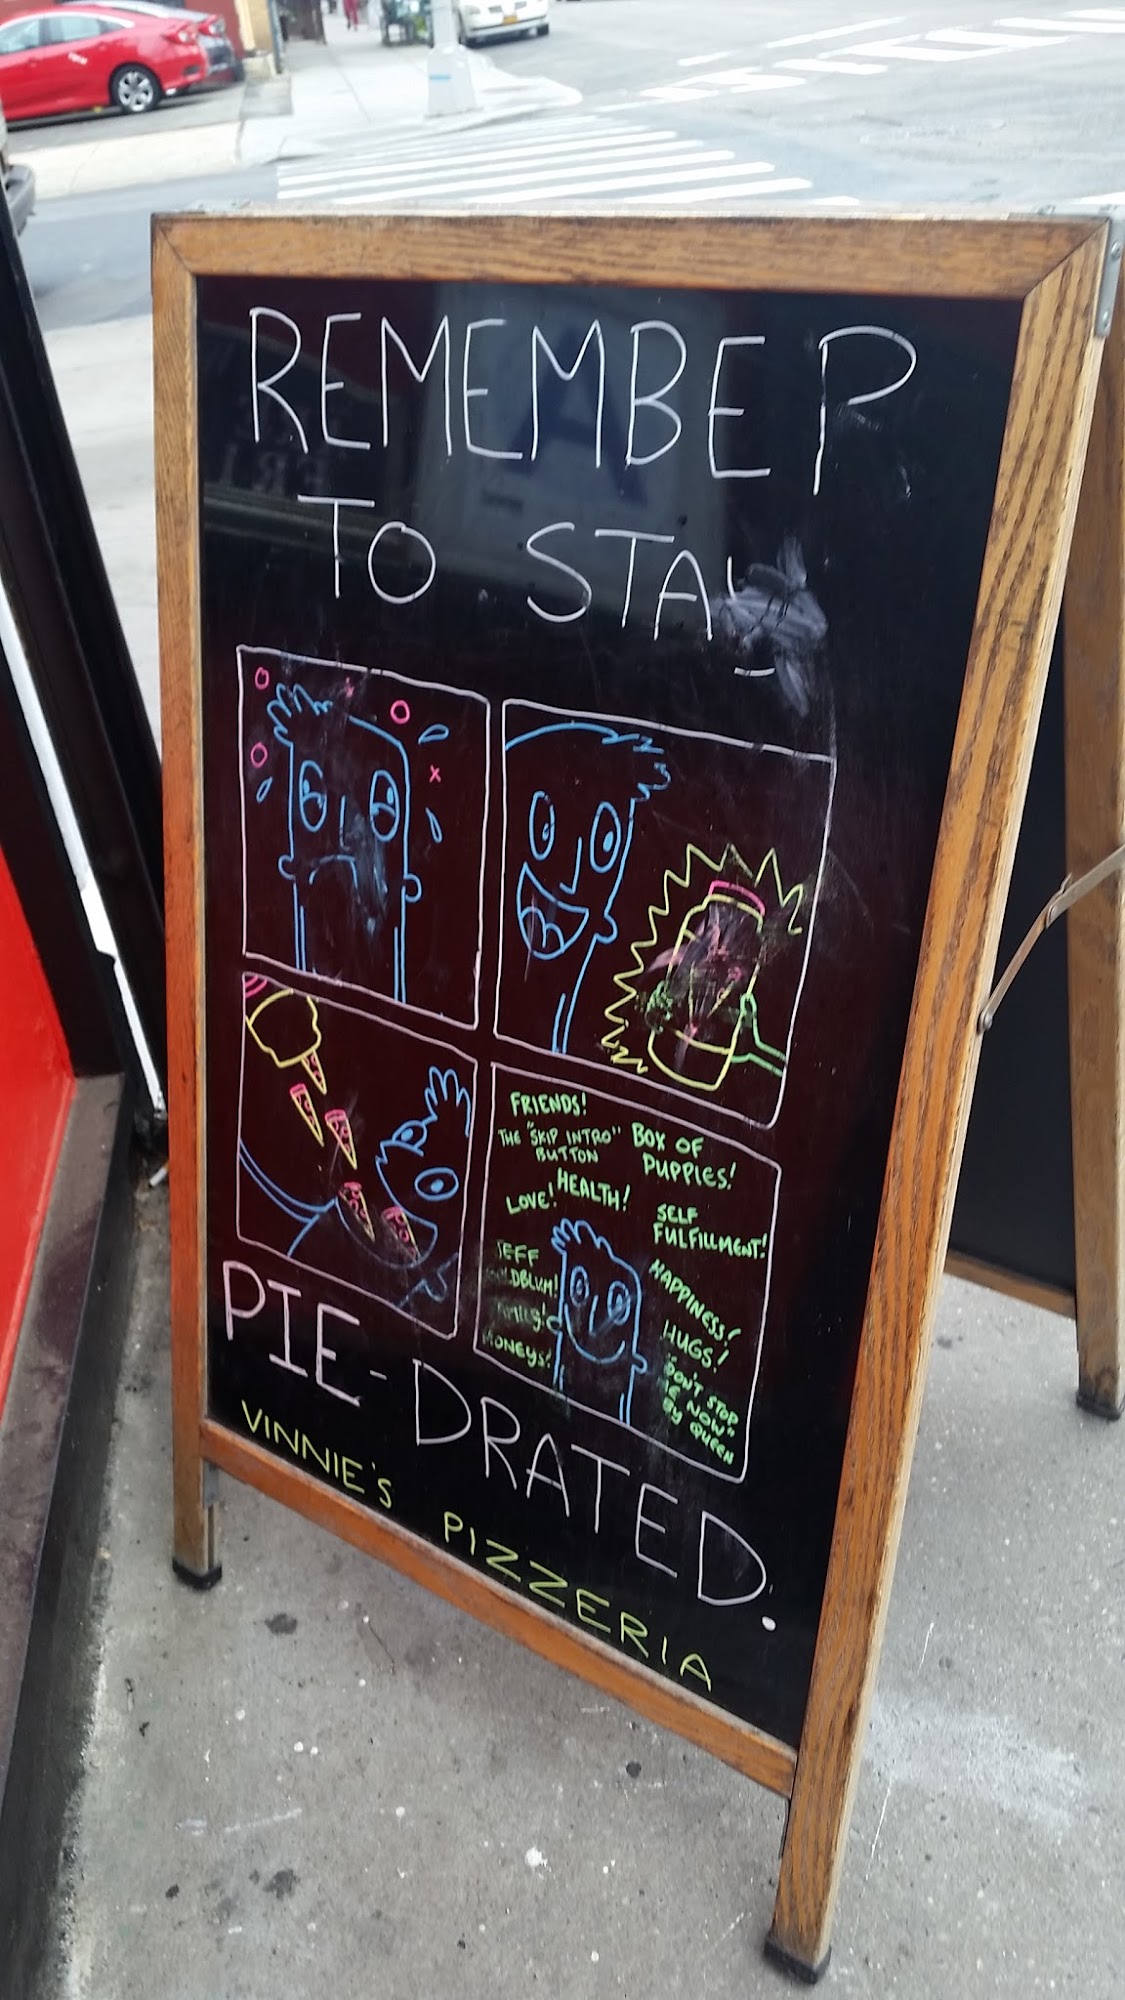 REMEMBER
TO STAY
FRIENDS!
THE "SKIP INTRO"
BUTTON
BOX OF
PUPPIES!
LOVE!
HEALTH!
SELF
FULFILLMENT!
JEFF
HAPPINESS!
HUGS!
"DON'T STOP
NOW"
BY QUEEN
PIE-DRATED.
VINNIE'S PIZZERIA